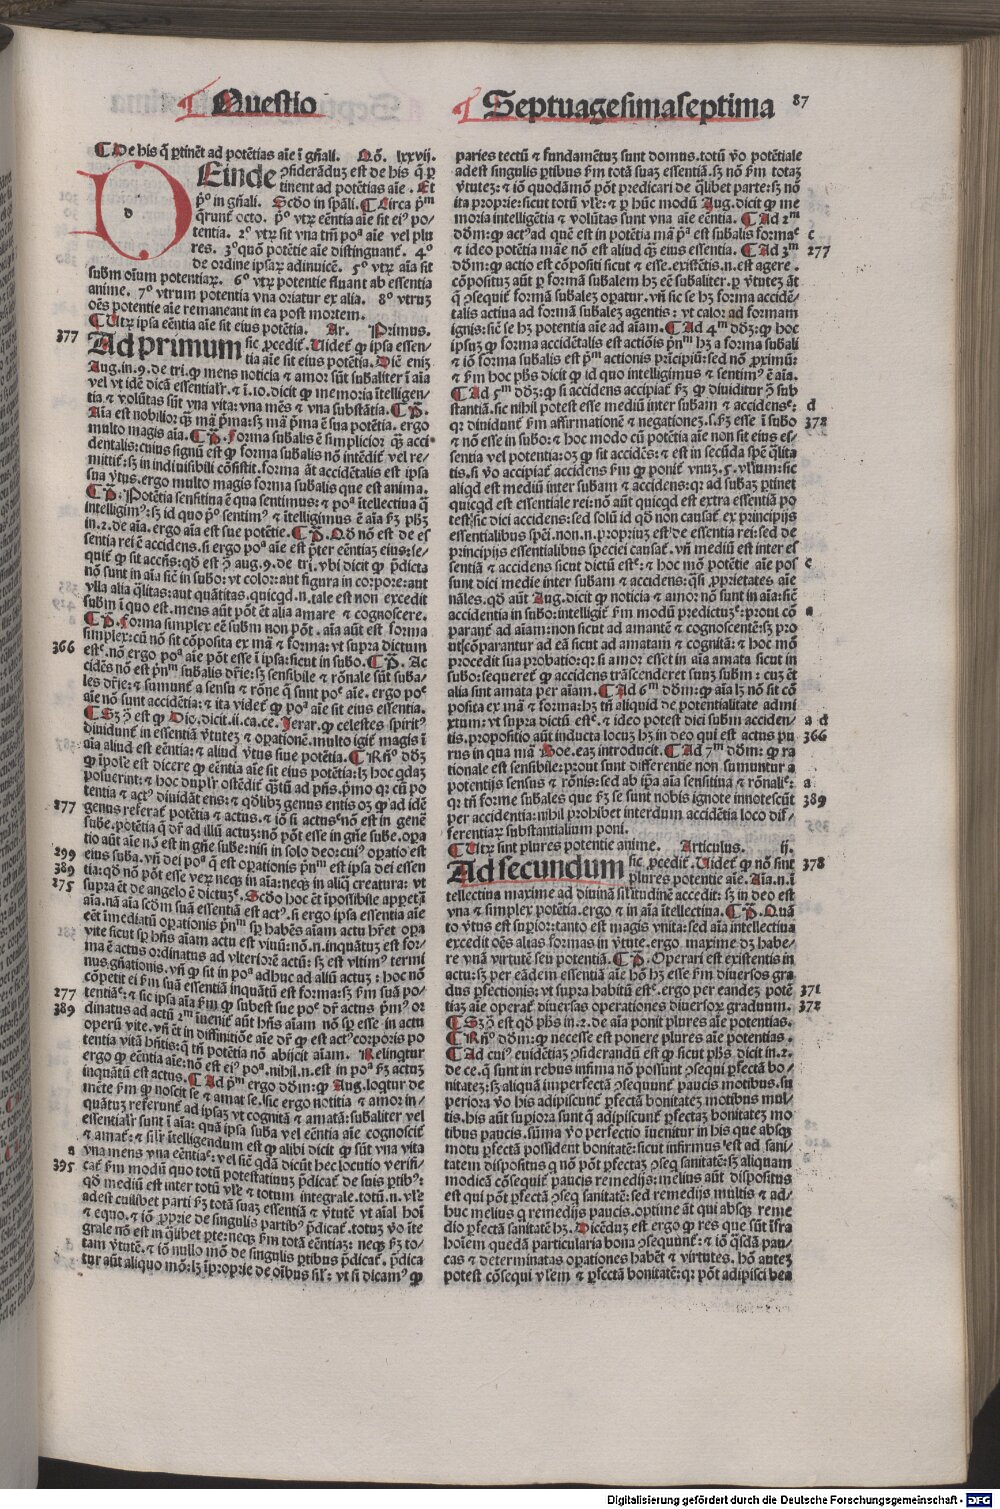 ¶ Questio
¶ Septuagesimaseptima
87
¶ De his q̄ ꝑtinēt ad potētias aīe ī gn̄ali. Qō. lxxvij.
DEinde ꝯsiderāduʒ est de his q̄ ꝑ
tinent ad potentias aīe. Et
pº in gn̄ali. Scḋo in spāli. ¶ Circa pᵐ
q̄runt̄ octo. pº vtꝝ eēntia aīe sit eiꝰ po/
tentia. 2º vtꝝ sit vna tm̄ poª aīe vel plu
res. 3º quō potētie aīe distinguant̄. 4º
de ordine ipsaꝝ adinuicē. 5º vtꝝ aīa sit
subm oīum potentiaꝝ. 6º vtꝝ potentie fluant ab essentia
anime. 7º vtrum potentia vna oriatur ex alia. 8º vtruʒ
oēs potentie aīe remaneant in ea post mortem.
¶ Utꝝ ipsa eēntia aīe sit eius potētia. Ar. Primus.
377
Ad primum sic ꝓcedit̄. Uidet̄ ꝙ ipsa essen/
tia aīe sit eius potētia. Dīc̄ eniʒ
Aug. in. 9. de tri. ꝙ mens noticia ⁊ amor sūt subaliter ī aīa
vel vt idē dicā essentialr̄. ⁊ ī. 10. dicit ꝙ memoria ītelligen/
tia ⁊ volūtas sūt vna vita: vna mēs ⁊ vna substātia. ¶ P̄.
Aīa est nobilior qꝫ mā p̄ma: sʒ mā p̄ma ē sua potētia. ergo
multo magis aīa. ¶ P̄. Forma subalis ē simplicior qꝫ acci/
dentalis: cuius signū est ꝙ forma subalis nō intēdit̄ vel re/
mittit̄: sʒ in indiuisibili cōsistit. forma āt accidētalis est ipsa
sua ꝟtus. ergo multo magis forma subalis que est anima.
¶ P̄. Potētia sensitiua ē qua sentimus: ⁊ poª ītellectiua q̄
intelligimꝰ: sʒ id quo pº sentimꝰ ⁊ ītelligimus ē aīa ẜm pħʒ
in. 2. de aīa. ergo aīa est sue potētie. ¶ P̄. Oē qḋ nō est de es
sentia rei ē accidens. si ergo poª aīe est p̄ter eēntiaʒ eius: se/
quit̄ ꝙ sit accn̄s: qḋ est ꝯ̄ aug. 9. de tri. vbi dicit ꝙ p̄dicta
nō sunt in aīa sic̄ in subo: vt color: aut figura in corpore: aut
vlla alia q̄litas: aut quātitas. quicqḋ. n. tale est non excedit
subm ī quo est. mens aut pōt ēt alia amare ⁊ cognoscere.
¶ P̄. Forma simplex eē subm non pōt. aīa aūt est forma
simplex: cū nō sit cōposita ex mā ⁊ forma: vt supra dictum
366
estᶜ. nō ergo poª aīe pōt esse ī ipsa: sicut in subo. ¶ P̄. Ac
cidēs nō est pⁿᵐ subalis dr̄ie: sʒ sensibile ⁊ rōnale sūt suba/
les dr̄ie: ⁊ sumunt̄ a sensu ⁊ rōne q̄ sunt poᵉ aīe. ergo poᵉ
aīe nō sunt accidētia: ⁊ ita videt̄ ꝙ poª aīe sit eius essentia.
¶ Sʒ ꝯ̄ est ꝙ Dio. dicit. ii. ca. ce. Ierar. ꝙ celestes spiritꝰ
diuidunt̄ in essentiā ꝟtuteʒ ⁊ oꝑationē. multo igit̄ magis ī
aīa aliud est eēntia: ⁊ aliud ꝟtus siue potētia. ¶ Rn̄º dd̄ʒ
ꝙ īpole est dicere ꝙ eēntia aīe sit eius potētia: lʒ hoc qdaʒ
posuerint: ⁊ hoc duplr̄ ostēdit̄ q̄ʒtū ad pn̄s. pº qꝛ cū po
tentia ⁊ actꝰ diuidāt ens: ⁊ qḋlibʒ genus entis oʒ ꝙ ad idē
277
genus referat̄ potētia ⁊ actus. ⁊ iō si actusᵉ nō est in genē
sube. potētia q̄ dr̄ ad illū actuʒ: nō pōt esse in gn̄e sube. oꝑa
tio aūt aīe nō est in gn̄e sube: nisi in solo deo: cuiꝰ oꝑatio est
299
eius suba. vn̄ dei poª q̄ est oꝑationis pⁿᵐ est ipsa dei essen
389
tia: qḋ nō pōt esse veꝝ neqꝫ in aīa: neqꝫ in aliq̄ creatura: vt
275
supra ēt de angelo ē dictuᶜ. Scḋo hoc ēt īpossibile apꝑet ī
aīa. nā aīa scḋm suā essentiā est actꝰ. si ergo ipsa essentia aīe
eēt īmediatū oꝑationis pⁿᵐ sꝑ habēs aīam actu hr̄et oꝑa
vite sicut sꝑ hn̄s aīam actu est viuū: nō. n. inquātuʒ est for/
ma ē actus ordinatus ad vlteriorē actū: sʒ est vltimꝰ termi
nus gn̄ationis. vn̄ ꝙ sit in poª adhuc ad aliū actuʒ: hoc nō
cōpetit ei ẜm suā essentiā inquātū est forma: sʒ ẜm suā po/
277
tentiāᶜ: ⁊ sic ipsa aīa ẜm ꝙ subest sue poᵉ dr̄ actus pᵐꝰ or
389
dinatus ad actū 2ᵐ iuenit̄ aūt hn̄s aīam nō sꝑ esse in actu
operū vite. vn̄ ēt in diffinitiōe aīe dr̄ ꝙ est actꝰ corꝑis po
tentia vitā hn̄tis: q̄ tn̄ potētia nō abijcit aīam. Relinqtur
ergo ꝙ eēntia aīe: nō est eiꝰ poª. nihil. n. est in poª ẜm actuʒ
inquātū est actus. ¶ Ad pᵐ ergo ddm: ꝙ Aug. loqtur de
mēte ẜm ꝙ noscit se ⁊ amat se. sic ergo notitia ⁊ amor in/
quātuʒ referunt̄ ad ipsaʒ vt cognitā ⁊ amatā: subaliter vel
essentialr̄ sunt ī aīa: quā ipsa suba vel eēntia aīe cognoscit̄
⁊ amat̄: ⁊ silr̄ ītelligendum est ꝙ alibi dicit ꝙ sūt vna vita
a
vna mens vna eēntiaᶜ: vel sic̄ qdā dicūt hec locutio verifi/
395
cat̄ ẜm modū quo totū potestatiuuʒ p̄dicat̄ de suis ꝑtibꝰ:
qḋ mediū est inter totū vl̄e ⁊ totum integrale. totū. n. vl̄e
adest cuilibet parti ẜm totā suaʒ essentiā ⁊ ꝟtutē vt aīal hoī
⁊ equo. ⁊ iō ꝓprie de singulis partibꝰ p̄dicat̄. totuʒ vo īte
grale nō est in q̄libet ꝑte: neqꝫ ẜm totā eēntiaʒ: neqꝫ ẜm to/
tam ꝟtutē. ⁊ iō nullo mō de singulis ꝑtibus p̄dicat̄. p̄dica
tur aūt aliquo mō: lʒ īproprie de oībus sil̄: vt si dicamꝰ ꝙ
paries tectū ⁊ fundamētuʒ sunt domus. totū v̄o potētiale
adest singulis ꝑtibus ẜm totā suaʒ essentiā. sʒ nō ẜm totaʒ
ꝟtuteʒ: ⁊ iō quodāmō pōt predicari de q̄libet parte: sʒ nō
ita proprie: sicut totū vl̄e: ⁊ ꝑ hūc modū Aug. dicit ꝙ me
moria intelligētia ⁊ volūtas sunt vna aīe eēntia. ¶ Ad 2ᵐ
c
ddm: ꝙ actꝰ ad quē est in potētia mā pª est subalis formaᶜ
277
⁊ ideo potētia māe nō est aliud qꝫ eius essentia. ¶ Ad 3ᵐ
ddm: ꝙ actio est cōpositi sicut ⁊ esse. existētis. n. est agere.
cōpositus aūt ꝑ formā subalem hʒ eē subaliter. ꝑ ꝟtuteʒ āt
q̄ ꝯsequit̄ formā subaleʒ oꝑatur. vn̄ sic se hʒ forma accidē/
talis actiua ad formā subaleʒ agentis: vt calor ad formam
ignis: sic̄ se hʒ potentia aīe ad aīam. ¶ Ad 4ᵐ ddʒ: ꝙ hoc
ipsuʒ ꝙ forma accidētalis est actiōis pⁿᵐ hʒ a forma subali
⁊ iō forma subalis est pᵐ actionis prīcipiū: sed nō ꝓximū:
⁊ ẜm hoc pħs dicit ꝙ id quo intelligimus ⁊ sentimꝰ ē aīa.
¶ Ad 5ᵐ ddʒ: ꝙ si accidens accipiat̄ ẜm ꝙ diuiditur ꝯ̄ sub
d
stantiā. sic nihil potest esse mediū inter subam ⁊ accidensᶜ:
372
qꝛ diuidunt̄ ẜm affirmationē ⁊ negationeʒ. s. ẜm esse ī subo
⁊ nō esse in subo: ⁊ hoc modo cū potētia aīe non sit eius es/
sentia vel potentia: oʒ ꝙ sit accidēs: ⁊ est in secūda spē q̄lita
tis. si v̄o accipiat̄ accidens ẜm ꝙ ponit̄ vnuʒ. 5. vl̄ium: sic
aliqd est mediū inter subam ⁊ accidens: qꝛ ad subaʒ ꝑtinet
quicqd est essentiale rei: nō aūt quicqd est extra essentiā po
test sic dici accidens: sed solū id qḋ non causat̄ ex principijs
essentialibus spēi. non. n. propriuʒ est de essentia rei: sed de
principijs essentialibus speciei causat̄. vn̄ mediū est inter es
c
sentiā ⁊ accidens sicut dictū estᶜ: ⁊ hoc mō potētie aīe pos
sunt dici medie inter subam ⁊ accidens: qsi ꝓprietates aīe
nāles. qḋ aūt Aug. dicit ꝙ noticia ⁊ amor nō sunt in aīa: sic̄
a
accidentia in subo: intelligit̄ ẜm modū predictuʒᶜ: prout cō
parant̄ ad aīam: non sicut ad amantē ⁊ cognoscentē: sʒ pro
ut cōparantur ad eā sicut ad amatam ⁊ cognitā: ⁊ hoc mō
procedit sua probatio: qꝛ si amor esset in aīa amata sicut in
subo: sequeret̄ ꝙ accidens trāscenderet suuʒ subm: cuʒ ēt
alia sint amata per aīam. ¶ Ad 6ᵐ ddm: ꝙ aīa lʒ nō sit cō
posita ex mā ⁊ forma: hʒ tn̄ aliquid de potentialitate admi
a d
xtum: vt supra dictū estᶜ. ⁊ ideo potest dici subm acciden/
366
tis. propositio aūt inducta locuʒ hʒ in deo qui est actus pu
rus in qua mā Boe. eaʒ introducit. ¶ Ad 7ᵐ ddm: ꝙ ra
tionale est sensibile: prout sunt differentie non sumuntur a
a
potentijs sensus ⁊ rōnis: sed ab ipsa aīa sensitiua ⁊ rōnaliᶜ:
389
qꝛ tn̄ forme subales que ẜm se sunt nobis ignote innotescūt
per accidentia: nihil prohibet interdum accidētia loco dif/
ferentiaꝝ substantialium poni.
¶ Utꝝ sint plures potentie anime. Articulus. ij.
378
Ad secundum sic ꝓcedit̄. Uidet̄ ꝙ nō sint
plures potentie aīe. Aīa. n. ī
tellectiua maxime ad diuinā silitudinē accedit: sʒ in deo est
vna ⁊ simplex potētia. ergo ⁊ in aīa ītellectiua. ¶ P̄. Quā
to ꝟtus est supior: tanto est magis vnita: sed aīa intellectiua
excedit oēs alias formas in ꝟtute. ergo maxime dʒ habe/
re vnā virtutē seu potentiā. ¶ P̄. Operari est existentis in
actu: sʒ per eādem essentiā aīe hō hʒ esse ẜm diuersos gra
371
dus ꝑfectionis: vt supra habitū estᶜ. ergo per eandeʒ potē
372
tiaʒ aīe operat̄ diuersas operationes diuersoꝝ graduum.
¶ Sʒ ꝯ̄ est qḋ pħs in. 2. de aīa ponit plures aīe potentias.
¶ Rn̄º ddm: ꝙ necesse est ponere plures aīe potentias.
¶ Ad cuiꝰ euidētiaʒ ꝯsiderandū est ꝙ sicut pħs dicit in. 2.
de ce. q̄ sunt in rebus infima nō possunt ꝯsequi ꝑfectā bo/
nitateʒ: sʒ aliquā imperfectā ꝯsequunt̄ paucis motibus. su
periora vo his adipiscunt̄ ꝑfectā bonitateʒ motibus mul/
tis. his aūt supiora sunt q̄ adipiscunt̄ ꝑfectaʒ bonitateʒ mo
tibus paucis. sūma v̄o perfectio īuenitur in his que absqꝫ
motu ꝑfectā possident bonitatē: sicut infirmusᶦ est ad sani/
tatem dispositus q nō pōt ꝑfectaʒ ꝯseq sanitatē: sʒ aliquam
modicā cōsequit̄ paucis remedijs: melius aūt dispositus
est qui pōt ꝑfectā ꝯseq sanitatē: sed remedijs multis ⁊ ad/
huc melius q remedijs paucis. optime āt qui absqꝫ reme
dio ꝑfectā sanitatē hʒ. Dicēduʒ est ergo ꝙ res que sūt īfra
hoīem quedā particularia bona ꝯsequunt̄: ⁊ iō qsdā pau/
cas ⁊ determinatas oꝑationes habēt ⁊ virtutes. hō auteʒ
potest cōsequi vl̄em ⁊ ꝑfectā bonitatē: qꝛ pōt adipisci bea
Digitalisierung gefördert durch die Deutsche Forschungsgemeinschaft - DFG